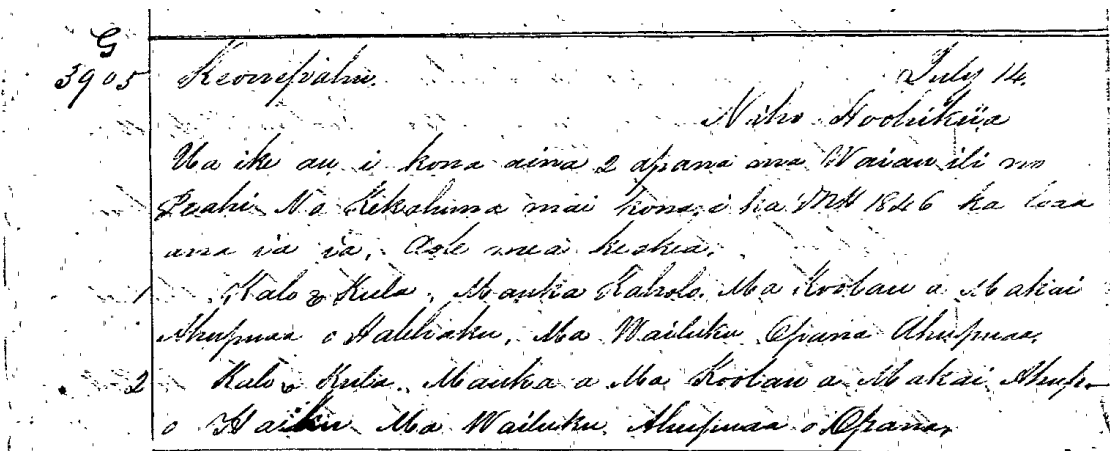 G
3905 Keonepahu. July 14.
Niho Hoohikiia
Ua ike au i kona aina 2 apana ma Waiau ili no
Peahi. Na Kikahuna mai kona i ka MH 1846 ka loaa
ana ia ia, Aole mea keakea.
1 Kalo & Kula, Mauka Kaholo, Ma Koolau a Makai
Ahupuaa o Halehaku, Ma Wailuku Opana Ahupuaa.
2 Kalo & Kula. Mauka a Ma Koolau a Makai Ahup.
o Haiku Ma Wailuku, Ahupuaa o Opana.